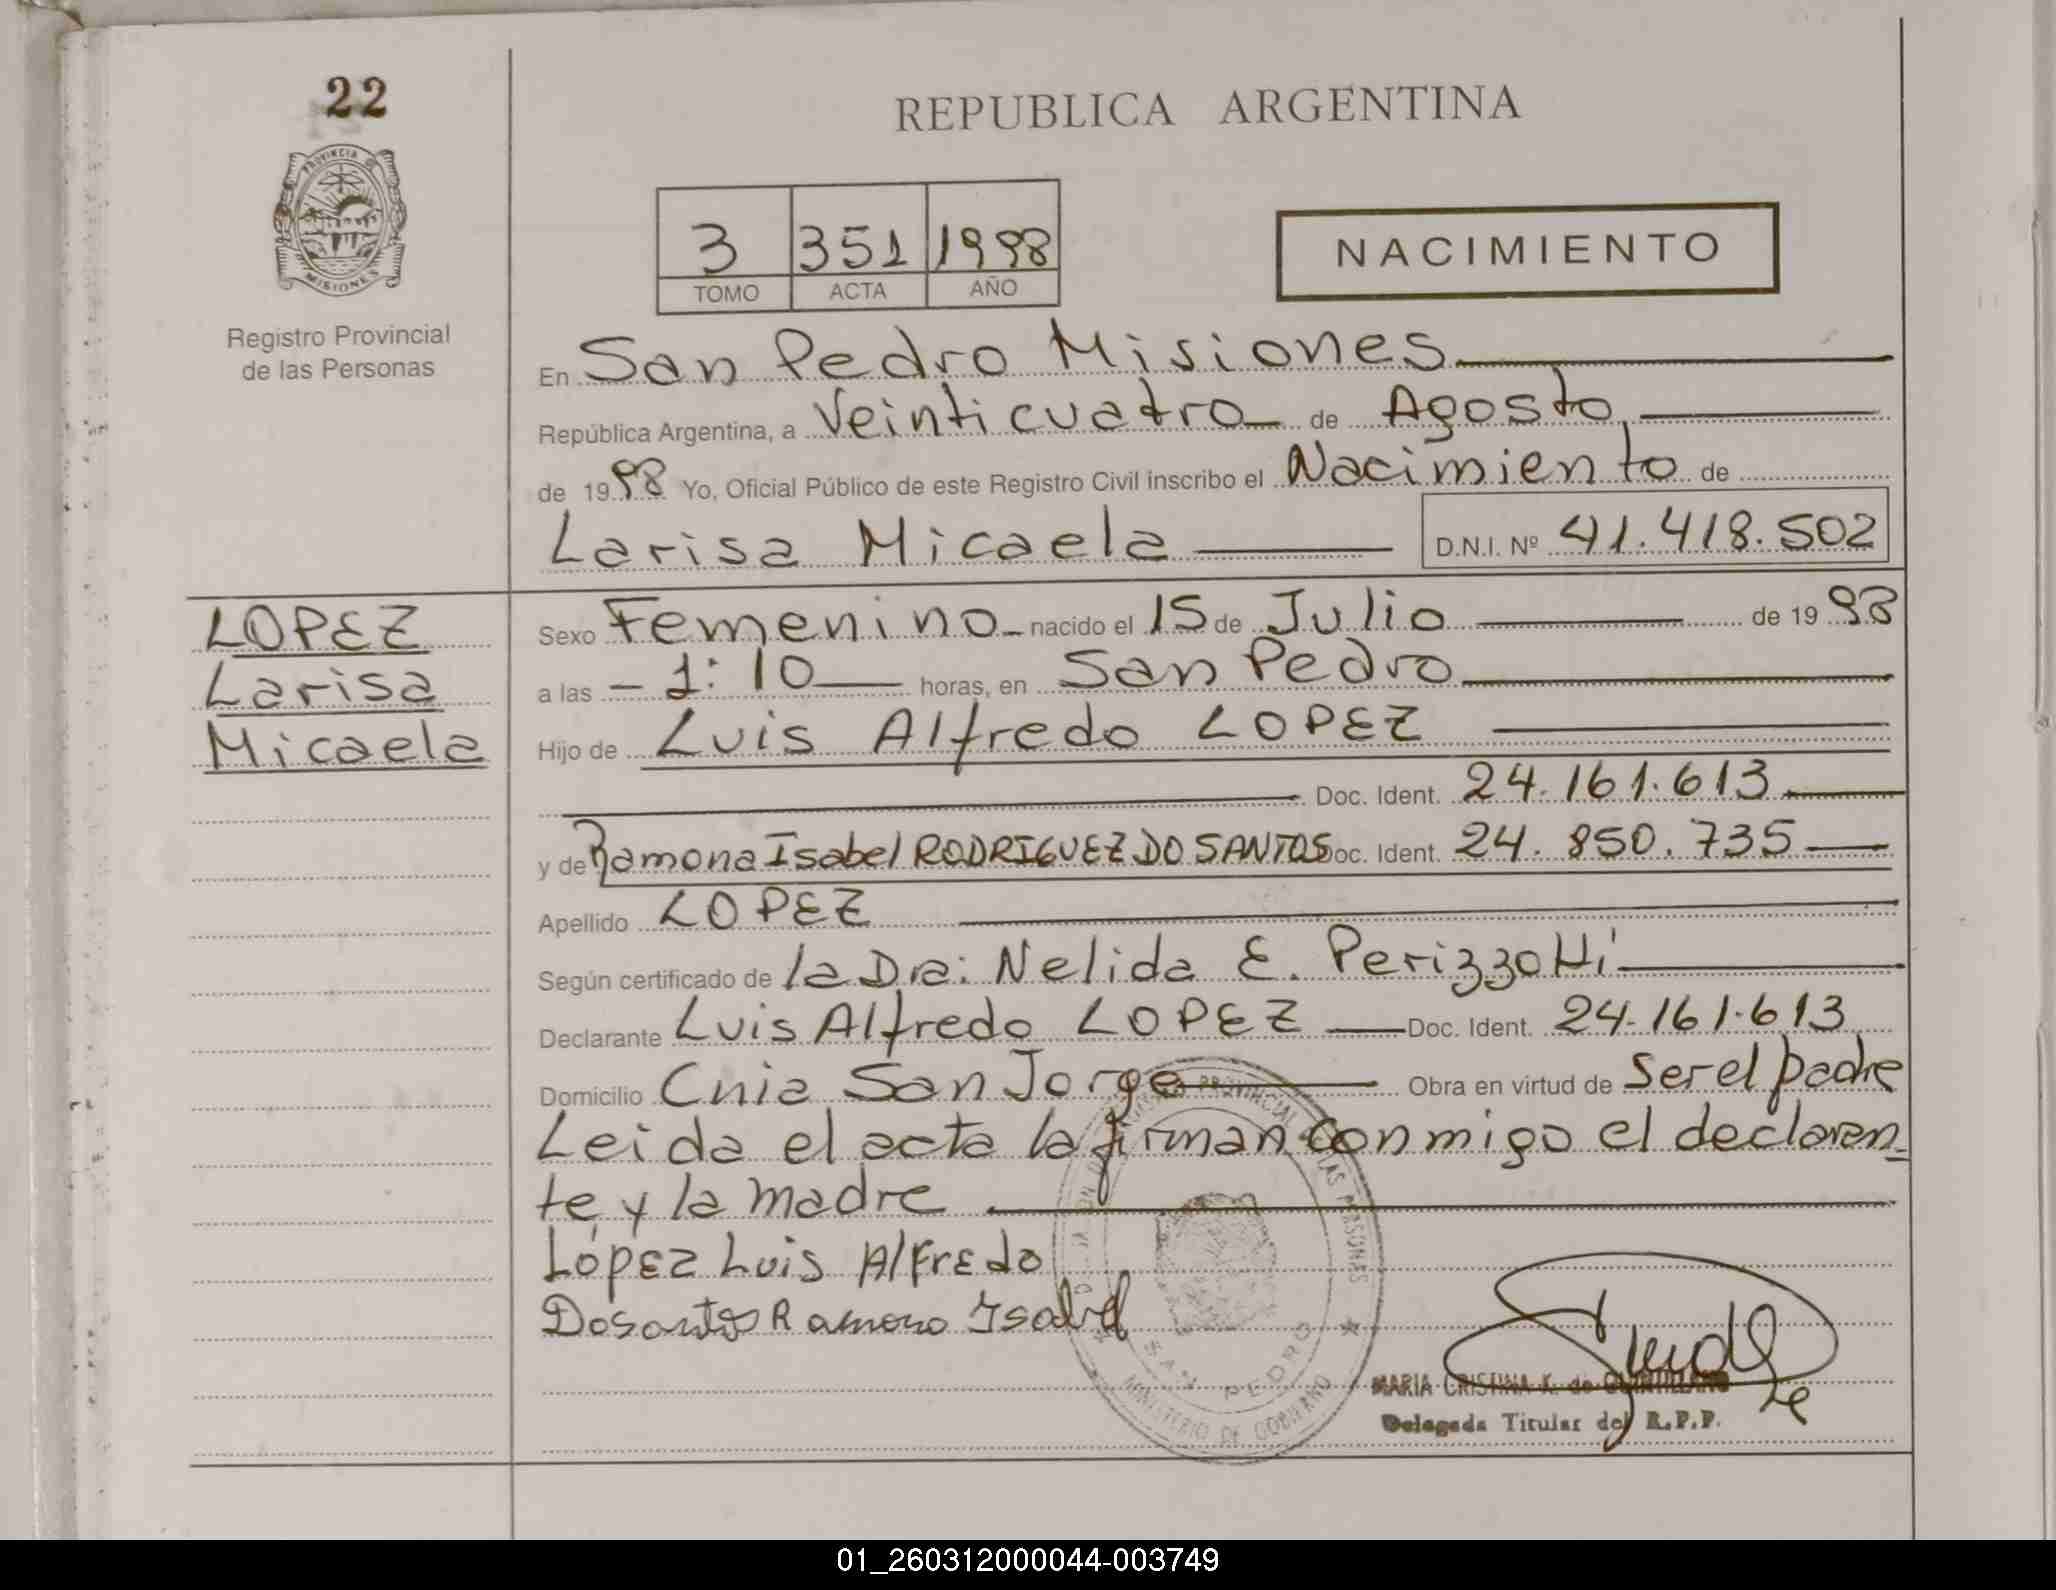 22
PROVINCIA DE
MISIONES
Registro Provincial
de las Personas
REPUBLICA ARGENTINA
3 351 1998
TOMO ACTA AÑO
NACIMIENTO
En San Pedro Misiones
República Argentina, a Veinticuatro de Agosto
de 1998 Yo, Oficial Público de este Registro Civil inscribo el Nacimiento de
Larisa Micaela D.N.I. Nº 41.418.502
LOPEZ
Larisa
Micaela
Sexo Femenino nacido el 15 de Julio de 1998
a las 1:10 horas, en San Pedro
Hijo de Luis Alfredo LOPEZ
Doc. Ident. 24.161.613
y de Ramona Isabel RODRIGUEZ DO SANTOS Doc. Ident. 24.850.735
Apellido LOPEZ
Según certificado de la Dra: Nelida E. Perizzotti
Declarante Luis Alfredo LOPEZ Doc. Ident. 24.161.613
Domicilio Cnia San Jorge Obra en virtud de Ser el padre
Leida el acta la firman conmigo el declaran-
te y la madre
López Luis Alfredo
Dosantos Ramona Isabel
PROVINCIAL DE LAS PERSONAS
SAN PEDRO
MINISTERIO DE GOBIERNO
MARIA CRISTINA K. de QUINTILLANO
Delegada Titular del R.P.P.
01_260312000044-003749